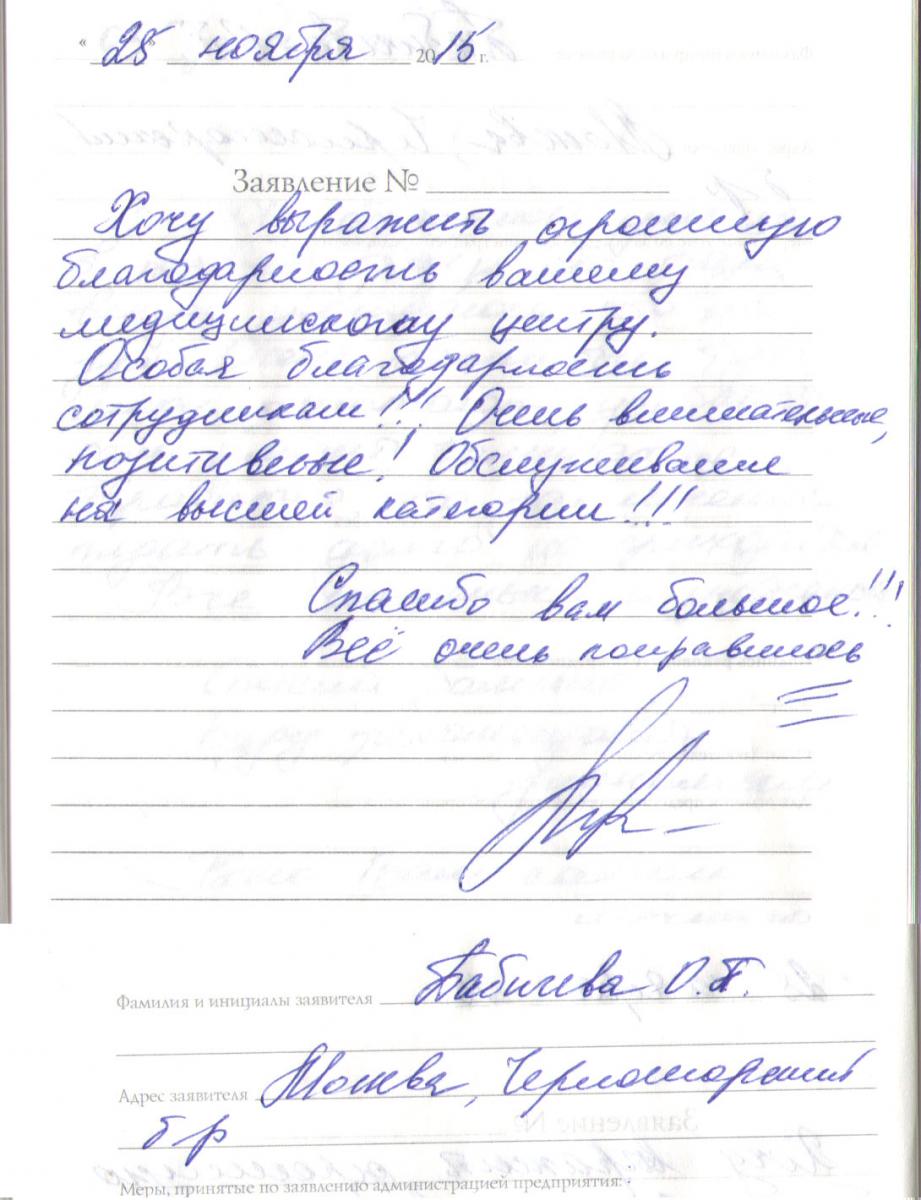 « 25 » ноября 2015 г.
Заявление №
Хочу выразить огромную
благодарность вашему
медицинскому центру.
Особая благодарность
сотрудникам!!! Очень внимательные,
позитивные! Обслуживание
на высшей категории!!!
Спасибо вам большое!!!
Всё очень понравилось
Фамилия и инициалы заявителя Бабичева О.П.
Адрес заявителя Москва, Черноморский
б-р
Меры, принятые по заявлению администрацией предприятия: